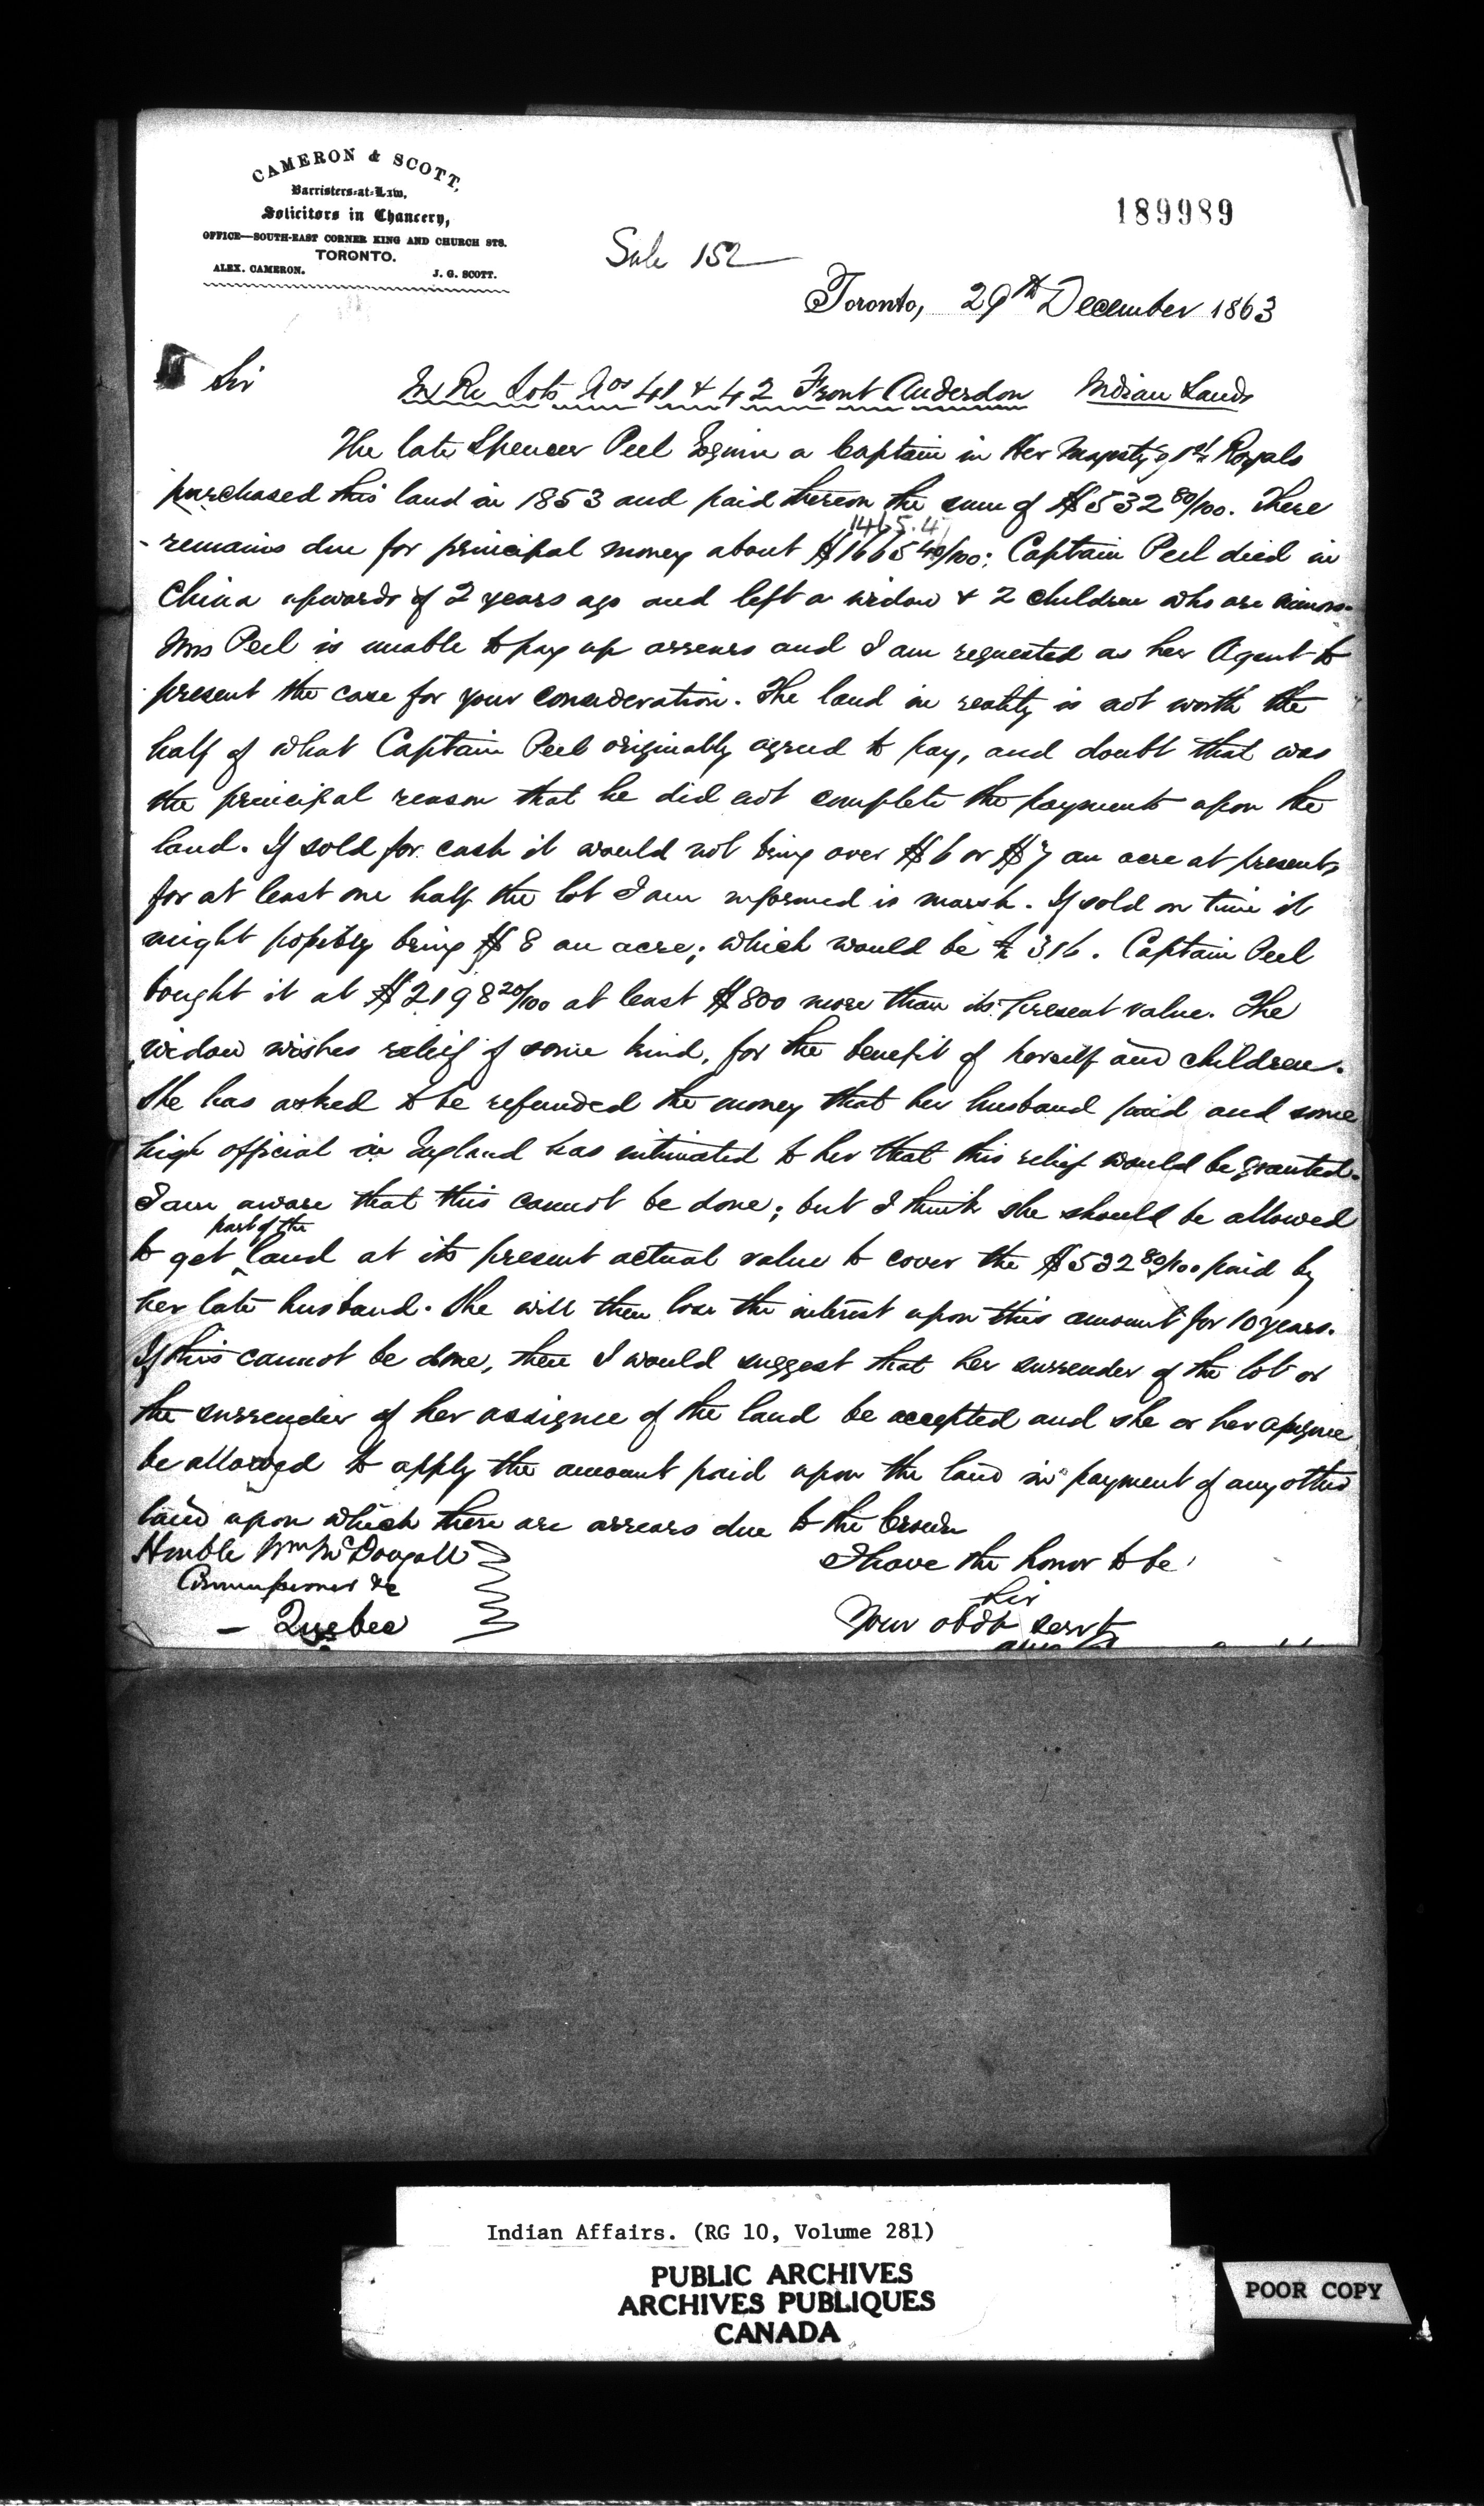 CAMERON & SCOTT,
Barristers-at-Law,
Solicitors in Chancery,
OFFICE—SOUTH-EAST CORNER KING AND CHURCH STS.
TORONTO.
ALEX. CAMERON. J. G. SCOTT.
189989
Sale 152
Toronto, 29th December 1863
Sir
In Re Lots Nos 41 & 42 Front Anderdon Indian Lands
The late Spencer Peel Esquire a Captain in Her Majesty's 1st Royals
purchased this land in 1853 and paid thereon the sum of $532 80/100. There
1465.4
remains due for principal money about $1665 40/100; Captain Peel died in
China upwards of 2 years ago and left a widow & 2 children who are minors.
Mrs Peel is unable to pay up arrears and I am requested as her Agent to
present the case for your consideration. The land in reality is not worth the
half of what Captain Peel originally agreed to pay, and doubt that was
the principal reason that he did not complete the payments upon the
land. If sold for cash it would not bring over $6 or $7 an acre at present,
for at least one half the lot I am informed is marsh. If sold on time it
might possibly bring $8 an acre; which would be £316. Captain Peel
bought it at $2198 20/100 at least $800 more than its present value. The
widow wishes relief of some kind, for the benefit of herself and children.
She has asked to be refunded the money that her husband paid and some
high official in England has intimated to her that this relief would be granted.
I am aware that this cannot be done; but I think she should be allowed
part of the
to get land at its present actual value to cover the $532 80/100 paid by
her late husband. She will then lose the interest upon this amount for 10 years.
If this cannot be done, then I would suggest that her surrender of the lot or
the surrender of her assignee of the land be accepted and she or her assignee
be allowed to apply the amount paid upon the land in payment of any other
land upon which there are arrears due to the Crown
Honble Wm McDougall
I have the honor to be
Commissioner &c
Sir
— Quebec
Your obdt servt
Indian Affairs. (RG 10, Volume 281)
PUBLIC ARCHIVES
ARCHIVES PUBLIQUES
CANADA
POOR COPY